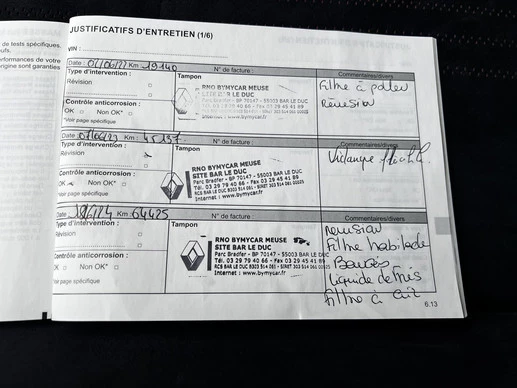 de tests spécifiques.
ufs.
erformances de votre
rigine sont garanties
JUSTIFICATIFS D'ENTRETIEN (1/6)
VIN :
Date : 02/06/22 Km : 19140 N° de facture :
Commentaires/divers
Type d'intervention :
Tampon
Révision
Filtre à pollen
Révision
RNO BYMYCAR MEUSE
SITE BAR LE DUC
Parc Bradfer - BP 70147 - 55003 BAR LE DUC
Tél. 03 29 79 40 66 - Fax 03 29 45 41 89
Internet : www.bymycar.fr
Contrôle anticorrosion :
OK Non OK*
*Voir page spécifique
Date : 07/06/23 Km : 45137 N° de facture :
Commentaires/divers
Type d'intervention :
Tampon
Révision
Vidange
RNO BYMYCAR MEUSE
SITE BAR LE DUC
Parc Bradfer - BP 70147 - 55003 BAR LE DUC
Tél. 03 29 79 40 66 - Fax 03 29 45 41 89
RCS BAR LE DUC 8303 514 061 - SIRET 303 514 061 00025
Internet : www.bymycar.fr
Contrôle anticorrosion :
OK Non OK*
*Voir page spécifique
Date : Km : 64425 N° de facture :
Commentaires/divers
Type d'intervention :
Tampon
Révision
révision
Filtre habitacle
Bougies
liquide de frein
filtre à air
RNO BYMYCAR MEUSE
SITE BAR LE DUC
Parc Bradfer - BP 70147 - 55003 BAR LE DUC
Tél. 03 29 79 40 66 - Fax 03 29 45 41 89
RCS BAR LE DUC 8303 514 061 - SIRET 303 514 061 00025
Internet : www.bymycar.fr
Contrôle anticorrosion :
OK Non OK*
*Voir page spécifique
6.13